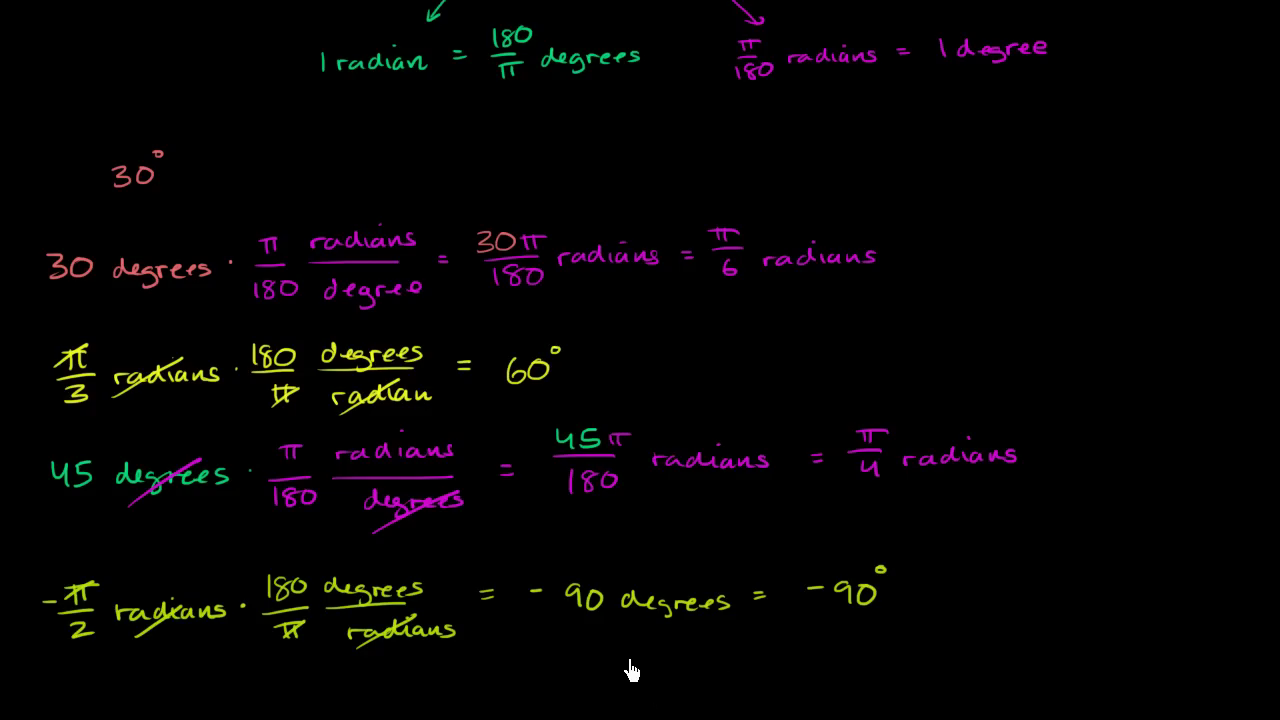 1 radian = 180/π degrees    π/180 radians = 1 degree
30°
30 degrees · π/180 radians/degree = 30π/180 radians = π/6 radians
π/3 radians · 180/π degrees/radian = 60°
45 degrees · π/180 radians/degrees = 45π/180 radians = π/4 radians
-π/2 radians · 180/π degrees/radians = - 90 degrees = -90°